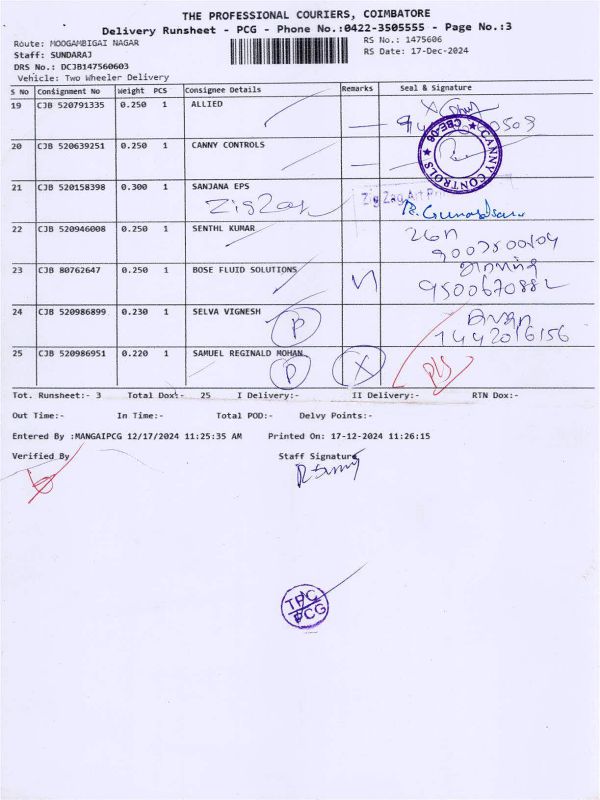 THE PROFESSIONAL COURIERS, COIMBATORE
Delivery Runsheet - PCG - Phone No.:0422-3505555 - Page No.:3
Route: MOOGAMBIGAI NAGAR
RS No.: 1475606
Staff: SUNDARAJ
RS Date: 17-Dec-2024
DRS No.: DCJB147560603
Vehicle: Two Wheeler Delivery
S No Consignment No Weight PCS Consignee Details Remarks Seal & Signature
19 CJB 520791335 0.250 1 ALLIED
20 CJB 520639251 0.250 1 CANNY CONTROLS
CANNY CONTROLS ★ CBE-06 ★
21 CJB 520158398 0.300 1 SANJANA EPS
ZigZag
Zig Zag Art
22 CJB 520946008 0.250 1 SENTHL KUMAR
23 CJB 80762647 0.250 1 BOSE FLUID SOLUTIONS
9500670882
24 CJB 520986899 0.230 1 SELVA VIGNESH
P
25 CJB 520986951 0.220 1 SAMUEL REGINALD MOHAN
P X
Tot. Runsheet:- 3 Total Dox:- 25 I Delivery:- II Delivery:- RTN Dox:-
Out Time:- In Time:- Total POD:- Delvy Points:-
Entered By :MANGAIPCG 12/17/2024 11:25:35 AM Printed On: 17-12-2024 11:26:15
Verified By Staff Signature
TPC
PCG